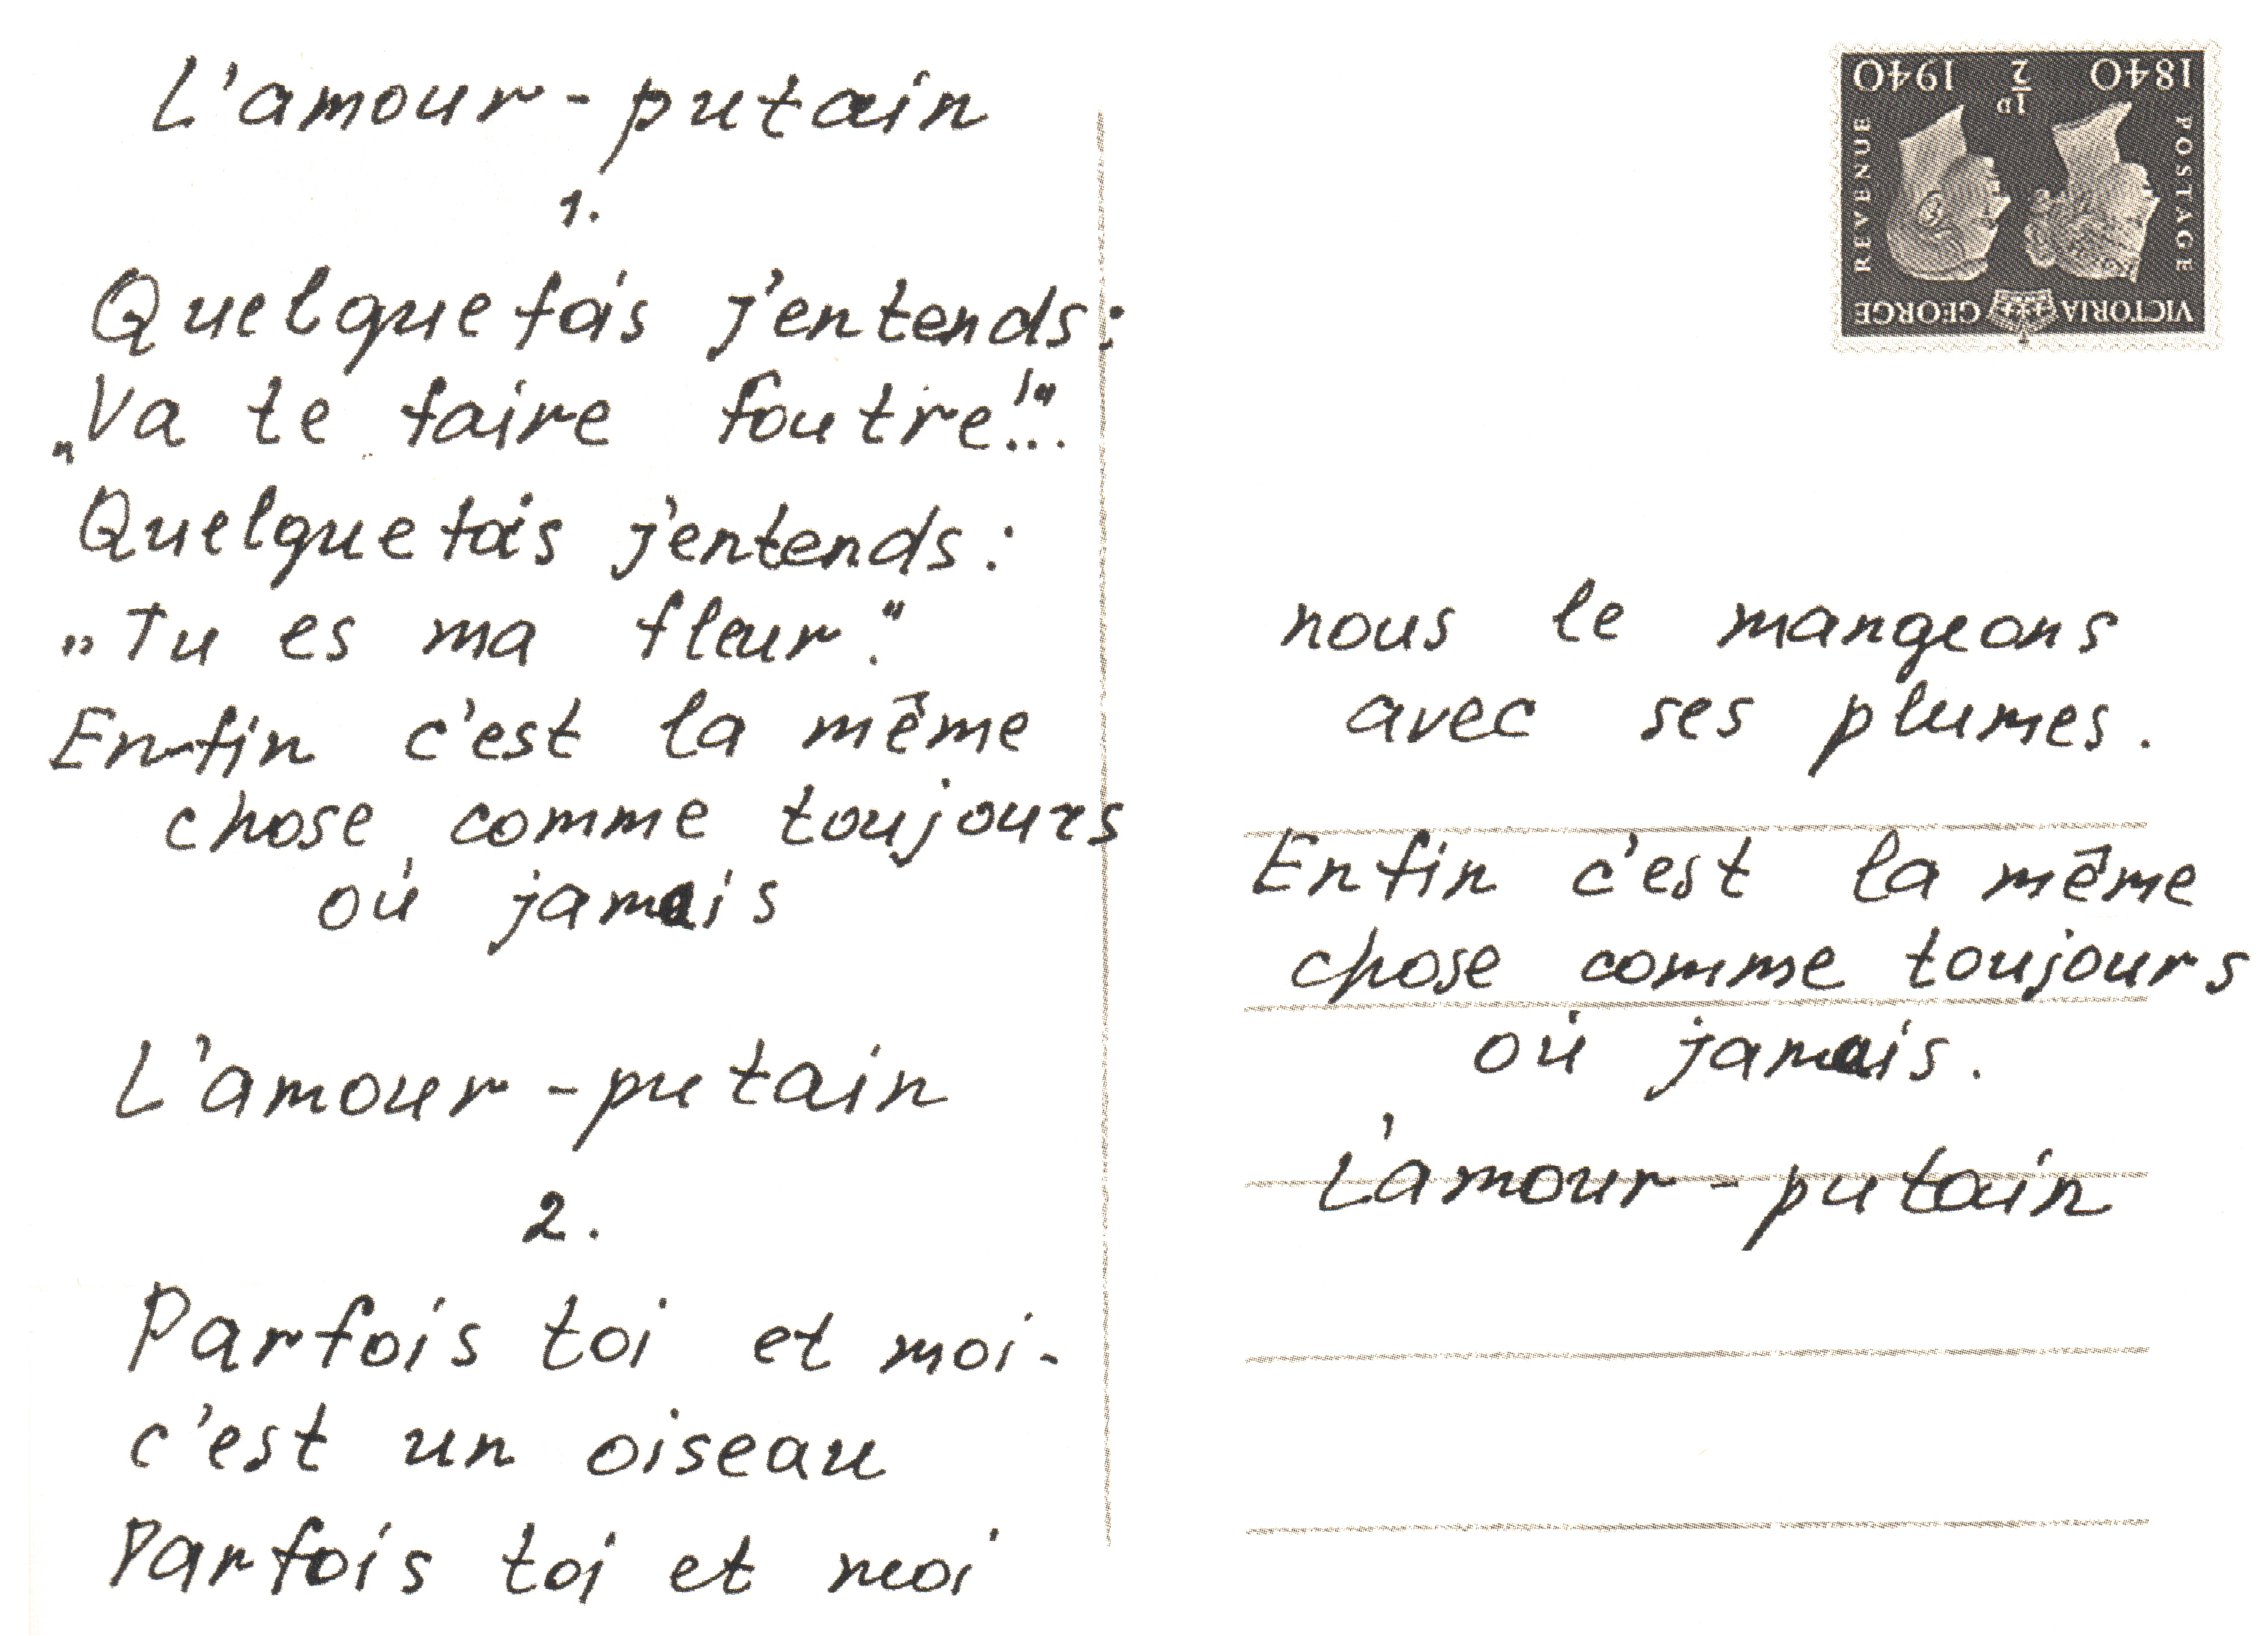 L'amour - putain
1.
Quelquefois j'entends:
„Va te faire foutre!"...
Quelquefois j'entends:
„Tu es ma fleur."
Enfin c'est la même
chose comme toujours
où jamais
L'amour - putain
2.
Parfois toi et moi -
c'est un oiseau
Parfois toi et moi
nous le mangeons
avec ses plumes.
Enfin c'est la même
chose comme toujours
où jamais.
L'amour - putain
VICTORIA GEORGE
POSTAGE
REVENUE
1840 1/2D 1940